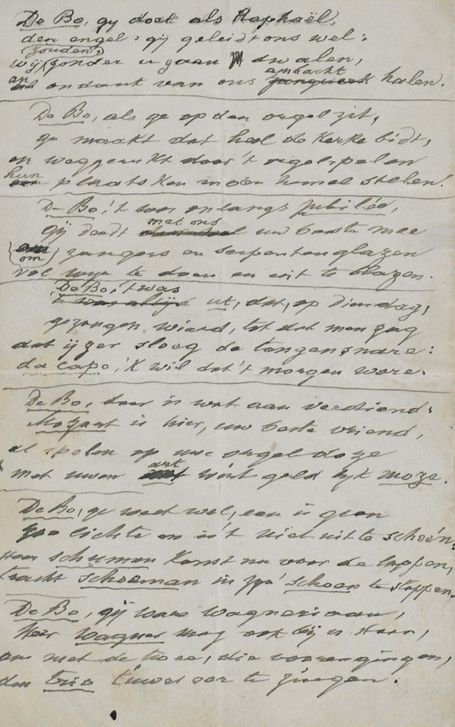 De Bo, gy doet als Raphaël,
den engel: gij geleidt ons wel:
zouden
wij zonder u gaen dwalen,
ambacht
en ondank van ons halen.
De Bo, als ge op den orgel zit,
ge maakt dat heel de kerke bidt,
en weggerukt door 't orgelspelen
hun plaatsken in den hemel stelen!
De Bo, 't was onlangs jubilée,
met ons
gij deedt uw beste mee
om zangers en serpentenglazen
vol wijn te doen en uit te blazen.
De Bo, 't was
ut, dat, op Dinsdag,
gezongen wierd, tot dat men zag
dat ijzer sloeg de tongensnare:
da capo, 'k wil dat 't morgen ware.
De Bo, daar is wat aan verdiend:
Mozart is hier, uw beste vriend,
al spelen op uwe orgel doze
art
met uwen wint geld lyk moze.
De Bo, ge weet wel, een is geen
lichte en is 't niet uit te scheên:
schumen komt nu voor de lappen,
tracht schoeman in zyn schoen te stappen.
De Bo, gij ware wagneriaan,
heer Wagner mag ook bij u staan,
om met de twee, die voorengingen,
den trio te zingen.